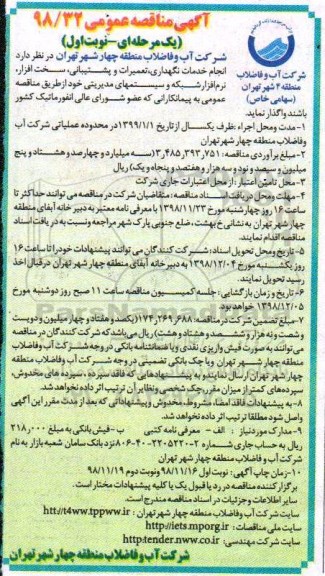 آگهی مناقصه عمومی ۹۸/۳۲
(یک مرحله‌ای - نوبت اول)
شرکت آب و فاضلاب
منطقه ۴ شهر تهران
(سهامی خاص)
شرکت آب و فاضلاب منطقه چهار شهر تهران در نظر دارد
انجام خدمات نگهداری، تعمیرات و پشتیبانی، سخت افزار،
نرم افزار شبکه و سیستمهای مدیریتی خود از طریق مناقصه
عمومی به پیمانکارانی که عضو شورای عالی انفورماتیک کشور
باشند واگذار نماید.
۱- مدت و محل اجراء: ظرف یکسال از تاریخ ۱۳۹۹/۱/۱ در محدوده عملیاتی شرکت آب
و فاضلاب منطقه چهار شهر تهران
۲- مبلغ برآوردی مناقصه: ۳,۴۸۵,۳۹۳,۷۵۱ (سه میلیارد و چهارصد و هشتاد و پنج
میلیون و سیصد و نود و سه هزار و هفتصد و پنجاه و یک) ریال
۳- محل تامین اعتبار: از محل اعتبارات جاری شرکت
۴- مهلت و محل دریافت اسناد مناقصه: متقاضیان شرکت در مناقصه می توانند حداکثر تا
ساعت ۱۶ روز چهارشنبه مورخ ۱۳۹۸/۱۱/۲۳ با معرفی نامه معتبر به دبیرخانه آبفای منطقه
چهار شهر تهران به نشانی خ بهشت، ضلع جنوبی پارک شهر مراجعه و نسبت به دریافت اسناد
مناقصه اقدام نمایند.
۵- تاریخ و محل تحویل اسناد: شرکت کنندگان می توانند پیشنهادات خود را تا ساعت ۱۶
روز یکشنبه مورخ ۱۳۹۸/۱۲/۰۴ به دبیرخانه آبفای منطقه چهار شهر تهران در قبال اخذ
رسید تحویل نمایند.
۶- تاریخ و زمان بازگشایی: جلسه کمیسیون مناقصه ساعت ۱۱ صبح روز دوشنبه مورخ
۱۳۹۸/۱۲/۰۵ خواهد بود.
۷- مبلغ تضمین شرکت در مناقصه: ۱۷۴,۲۶۹,۶۸۸ (یکصد و هفتاد و چهار میلیون و دویست
و شصت و نه هزار و ششصد و هشتاد و هشت) ریال می باشد که شرکت کنندگان در مناقصه
می توانند به صورت فیش واریزی نقدی و یا ضمانتنامه بانکی در وجه شرکت آب و فاضلاب
منطقه چهار شهر تهران و یا چک بانکی تضمینی در وجه شرکت آب و فاضلاب منطقه
چهار شهر تهران ارسال نمایند و به پیشنهادهایی که فاقد سپرده، سپرده های مخدوش،
سپرده های کمتر از میزان مقرر، چک شخصی و نظایر آن ترتیب اثر داده نخواهد شد.
۸- به پیشنهادات فاقد امضاء، مشروط، مخدوش و پیشنهاداتی که بعد از مدت مقرر این آگهی
واصل شود مطلقا ترتیب اثر داده نخواهد شد.
۹- مدارک مورد نیاز: الف - معرفی نامه کتبی ب - فیش بانکی به مبلغ ۲۱۸,۰۰۰
ریال به حساب جاری شماره نزد بانک سامان شعبه بازار به نام
شرکت آب و فاضلاب منطقه چهار شهر تهران
۱۰- زمان چاپ آگهی: نوبت اول ۹۸/۱۱/۱۶ و نوبت دوم ۹۸/۱۱/۱۹
برگزار کننده مناقصه در رد یا قبول یک یا کلیه پیشنهادات مختار است.
سایر اطلاعات و جزئیات در اسناد مناقصه مندرج است.
سایت شرکت آب و فاضلاب منطقه چهار شهر تهران: http://t4ww.tppww.ir
سایت ملی مناقصات: http://iets.mporg.ir
سایت شرکت مهندسی: http:tender.nww.co.ir
شرکت آب و فاضلاب منطقه چهار شهر تهران